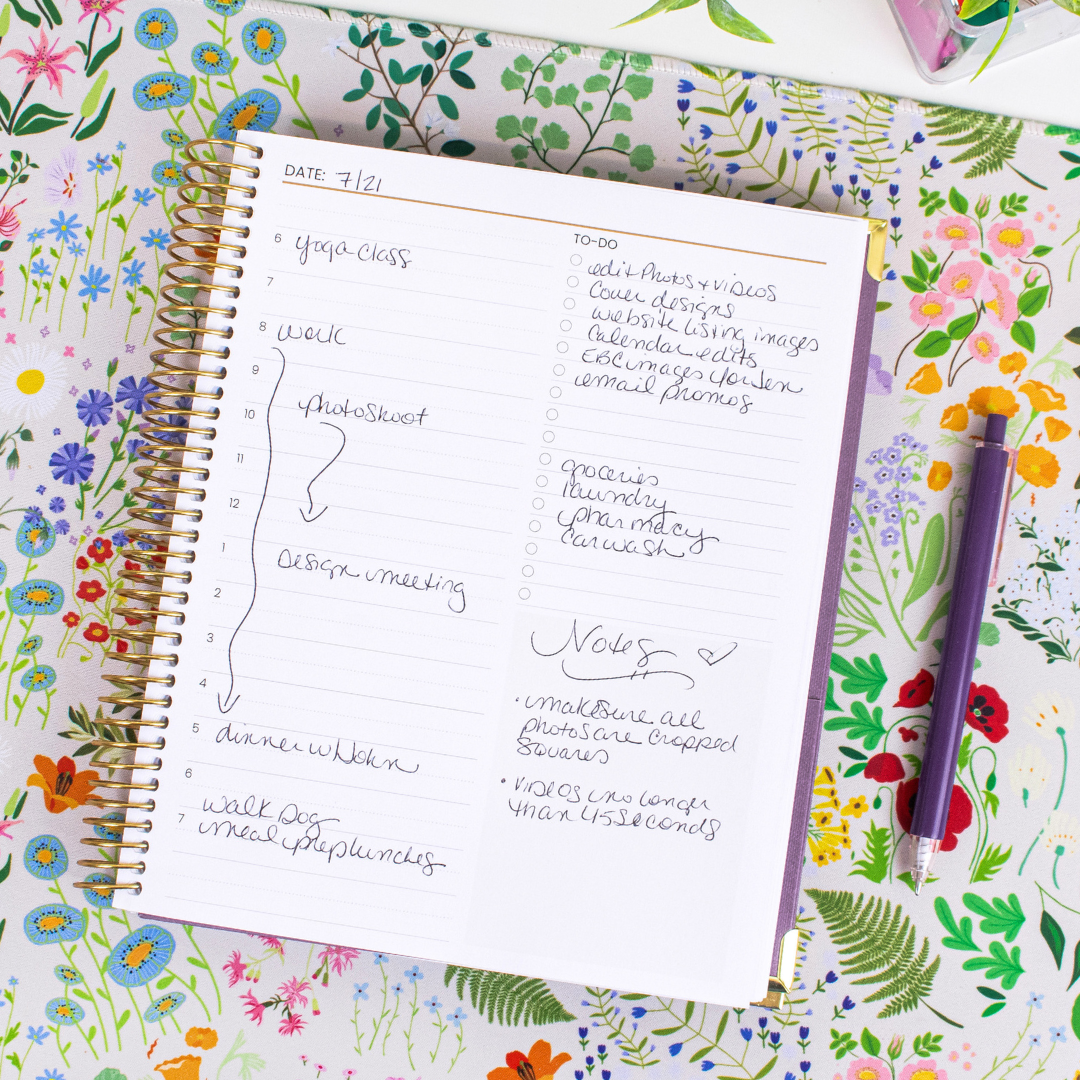 DATE: 7/21
6 yoga class
7
8 work
9
10 photoshoot
11
12
1 Design meeting
2
3
4
5 dinner w/ John
6
walk Dog
7 meal prep lunches
TO-DO
edit photos + videos
Cover designs
website listing images
Calendar edits
EBC images for Jen
email promos
groceries
laundry
pharmacy
carwash
Notes
• make sure all
photos are cropped
squares
• videos no longer
than 45 seconds